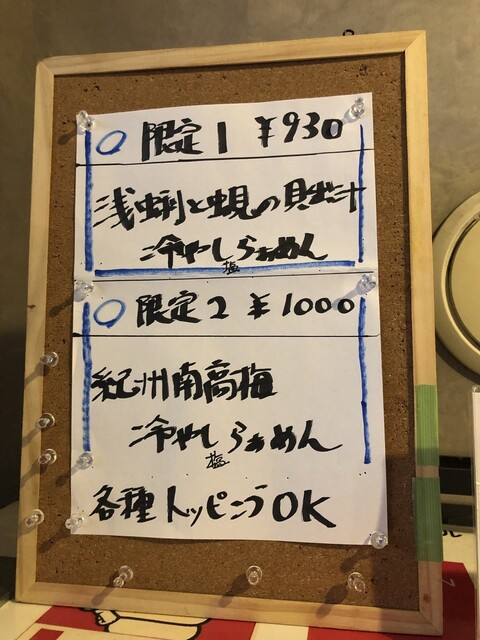 ○ 限定1 ¥930
浅蜊と蜆の貝出汁
冷やしらぁめん
塩
○ 限定2 ¥1000
紀州南高梅
冷やしらぁめん
塩
各種トッピングOK